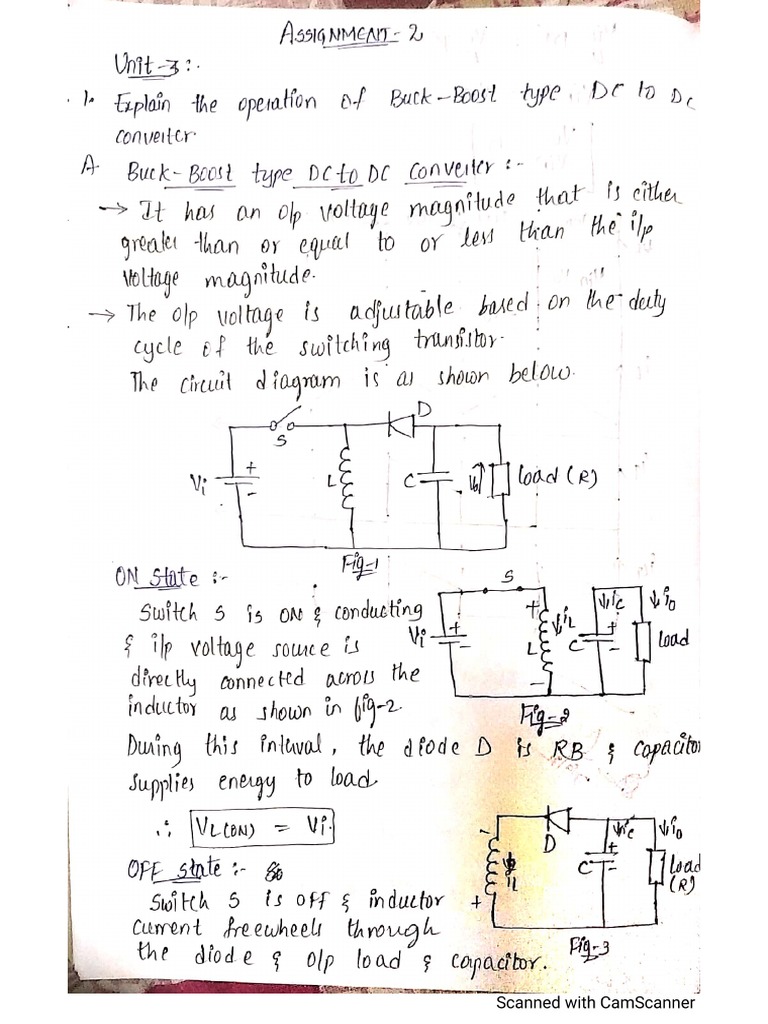 ASSIGNMENT-2
Unit-3:-
1. Explain the operation of Buck-Boost type DC to DC
converter.
A. Buck-Boost type DC to DC Converter :-
→ It has an o/p voltage magnitude that is either
greater than or equal to or less than the i/p
voltage magnitude.
→ The o/p voltage is adjustable based on the duty
cycle of the switching transistor.
The circuit diagram is as shown below.
D
S
Vi
+
-
L
C
Load (R)
Fig-1
ON State :-
Switch S is ON & conducting
& i/p voltage source is
directly connected across the
inductor as shown in fig-2.
S
Vi
+
-
+
L
↓iL
-
C
↓ic
+
-
↓io
Load
Fig-2
During this interval, the diode D is RB & capacitor
supplies energy to load
∴ VL(ON) = Vi.
OFF State :-
Switch S is off & inductor
current freewheels through
the diode & o/p load & capacitor.
-
iL
+
D
↓ic
+
-
C
↓io
Load
(R)
Fig-3
Scanned with CamScanner